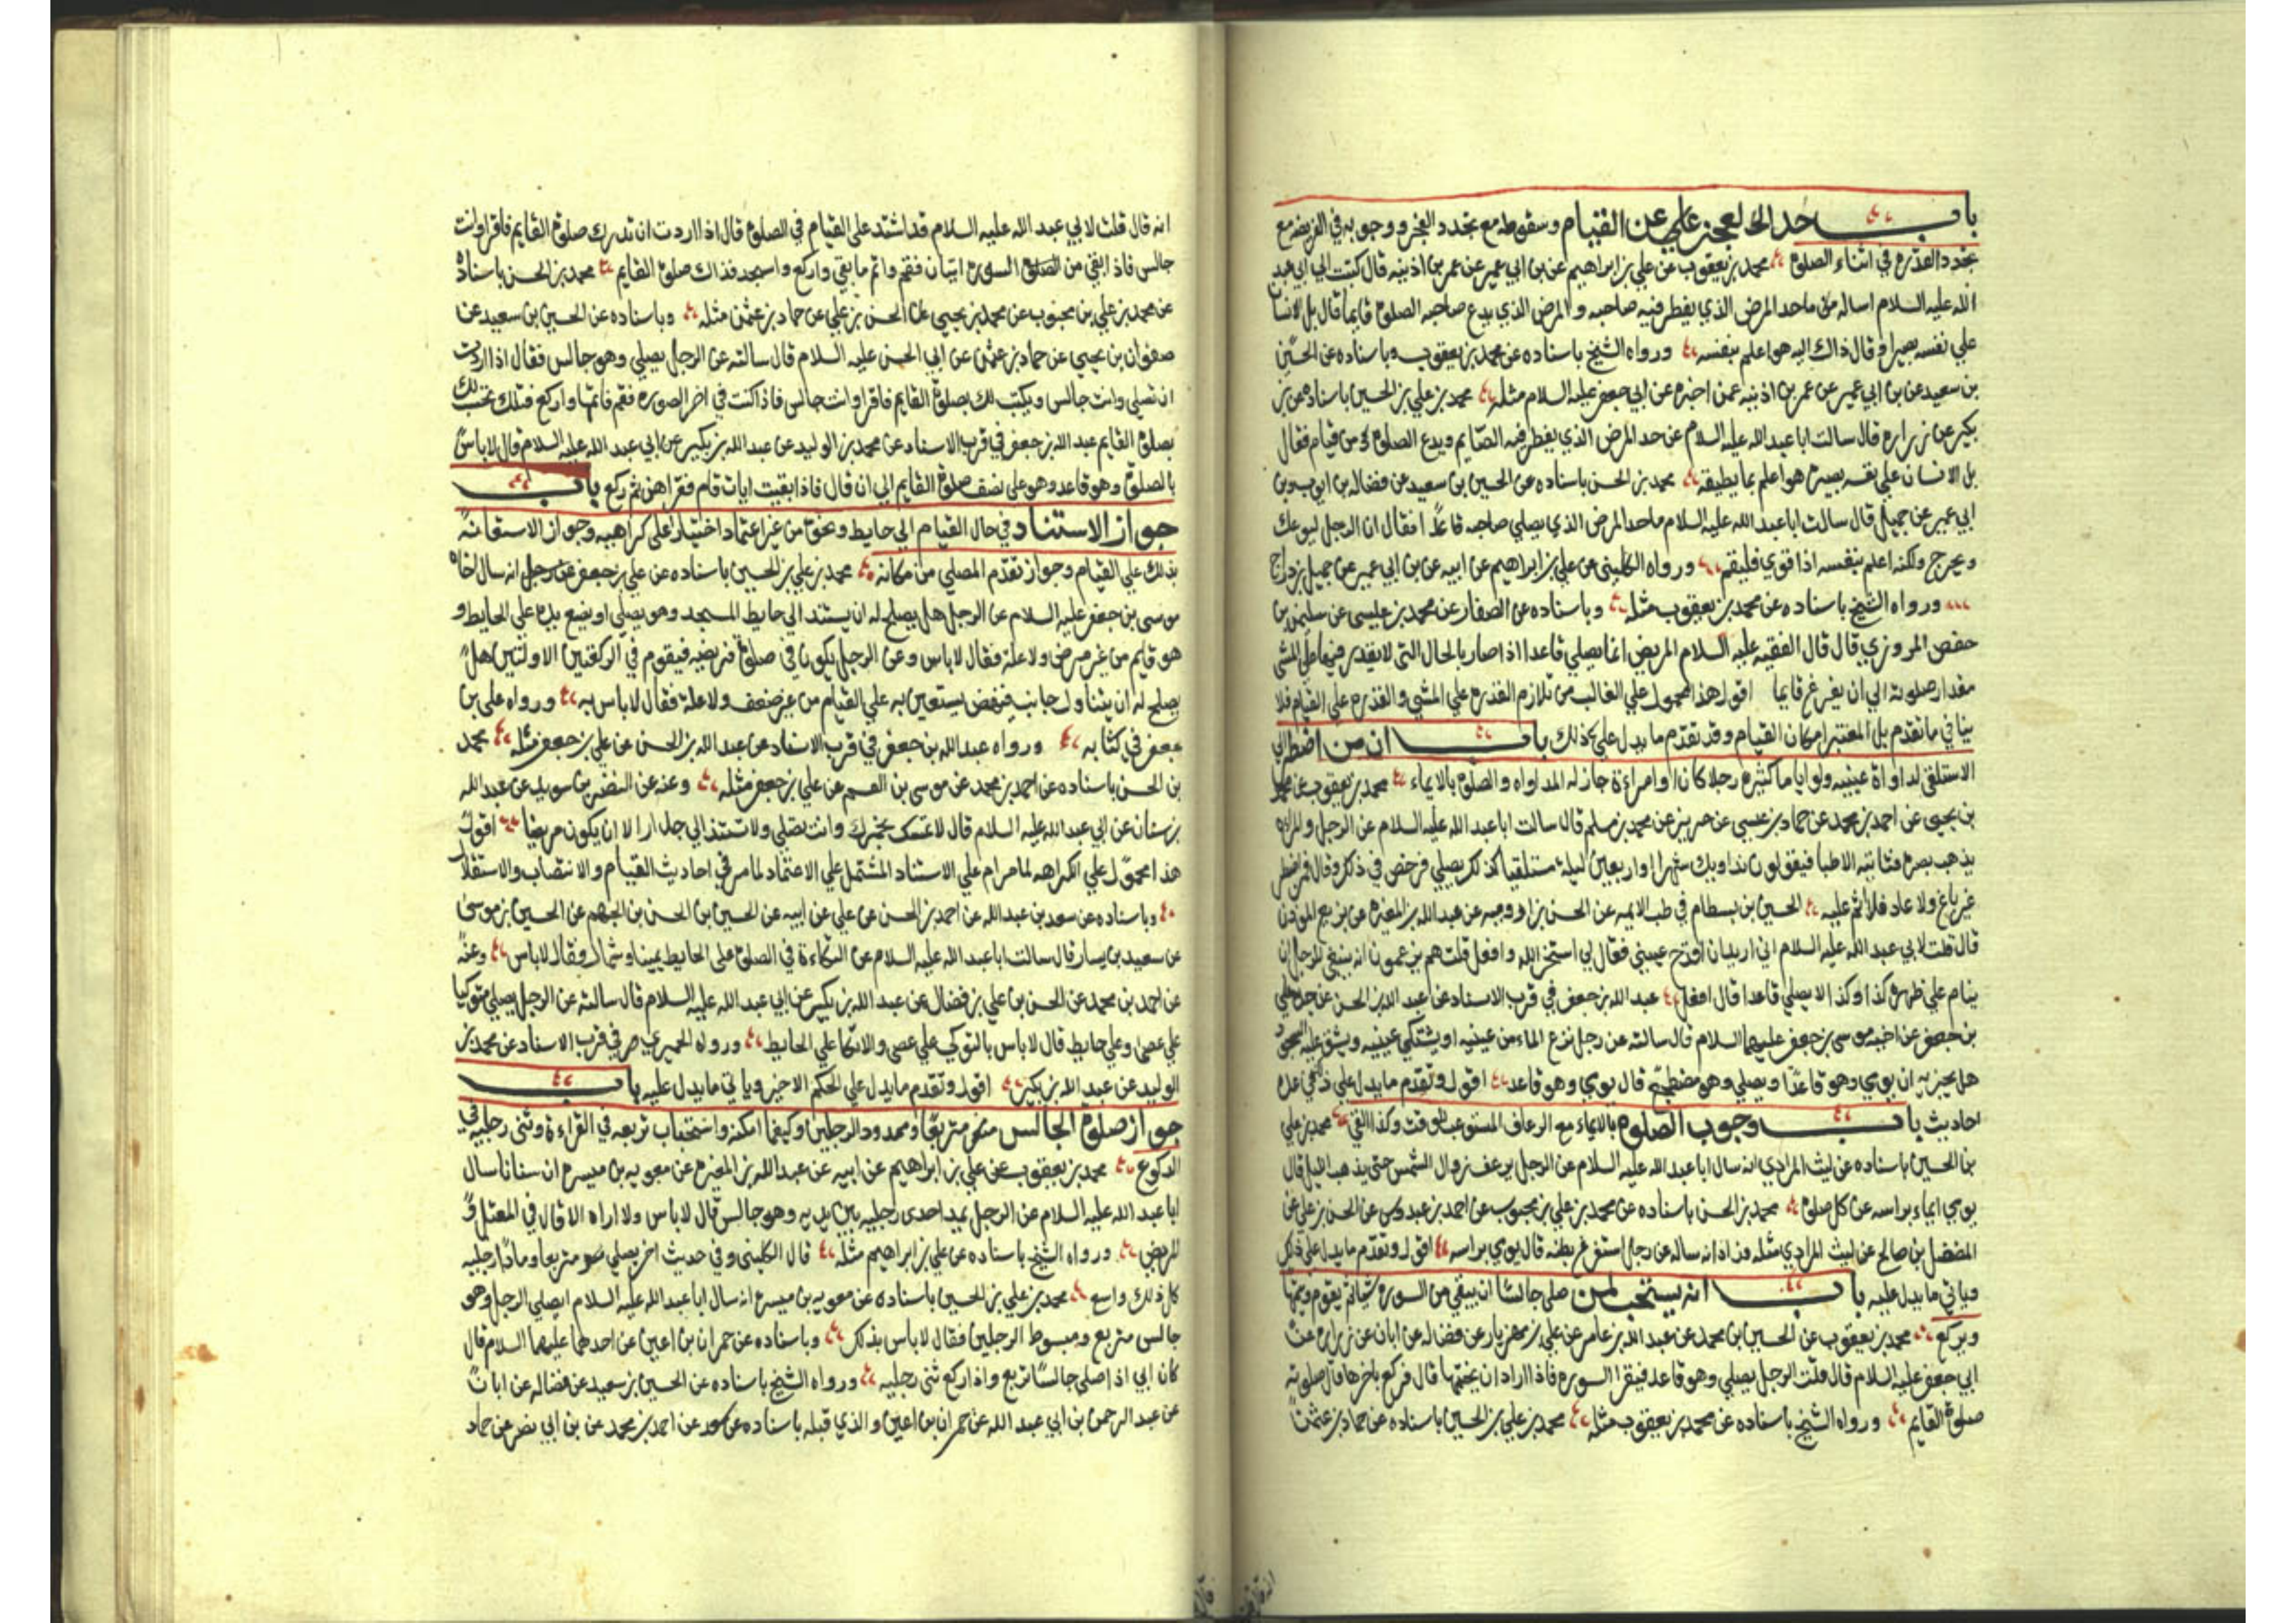 باب حد العجز عن القيام وسقوطه مع تجدد العجز ووجوبه في الفريضة مع
تجدد القدرة في اثناء الصلوة محمد بن يعقوب عن علي بن ابراهيم عن بن ابي عمير عن عمر بن اذينه قال كتبت الي ابي عبد
الله عليه السلام اساله ما حد المرض الذي يفطر فيه صاحبه والمرض الذي يدع صاحبه الصلوة قايما قال بل الانسان
علي نفسه بصيرة وقال ذاك اليه هو اعلم بنفسه ورواه الشيخ باسناده عن محمد بن يعقوب وباسناده عن الحسين
بن سعيد عن بن ابي عمير عن عمر بن اذينه عمن اخبره عن ابي جعفر عليه السلام مثله محمد بن علي بن الحسين باسناده عن بن
بكير عن زراره قال سالت ابا عبد الله عليه السلام عن حد المرض الذي يفطر فيه الصايم ويدع الصلوة من قيام فقال
بل الانسان علي نفسه بصيرة هو اعلم بما يطيقه محمد بن الحسن باسناده عن الحسين بن سعيد عن فضاله بن ايوب وبن
ابي عمير عن جميل قال سالت ابا عبد الله عليه السلام ما حد المرض الذي يصلي صاحبه قاعدا فقال ان الرجل ليوعك
ويحرج ولكنه اعلم بنفسه اذا قوي فليقم ورواه الكليني عن علي بن ابراهيم عن ابيه عن بن ابي عمير عن جميل بن دراج
ورواه الشيخ باسناده عن محمد بن يعقوب مثله وباسناده عن الصفار عن محمد بن عيسى عن سليمن بن
حفص المروزي قال قال الفقيه عليه السلام المريض انما يصلي قاعدا اذا صار بالحال التي لا يقدر فيها علي المشي
مقدار صلوته الي ان يفرغ قايما اقول هذا محمول علي الغالب من تلازم القدرة علي المشي والقدرة علي القيام فلا
ينافي ما تقدم بل المعتبر امكان القيام وقد تقدم ما يدل علي ذلك باب ان من اضطر الي
الاستلقي لمداواة عينيه ولو اياما كثيره رجلا كان او امراة جاز له المداواه والصلوة بالايماء محمد بن يعقوب عن محمد
بن يحيى عن احمد بن محمد عن حماد بن عيسى عن حريز عن محمد بن مسلم قال سالت ابا عبد الله عليه السلام عن الرجل والمراه
يذهب بصره فتاتيه الاطبا فيقولون نداويك شهرا او اربعين ليلة مستلقيا كذلك يصلي فرخص في ذلك وقال فمن اضطر
غير باغ ولا عاد فلا اثم عليه الحسين بن بسطام في طب الايمه عن الحسن بن اورمه عن عبد الله بن المغيره عن بزيع المؤذن
قال قلت لابي عبد الله عليه السلام اني اريد ان اقدح عيني فقال لي استخر الله وافعل قلت هم يزعمون انه ينبغي للرجل ان
ينام علي ظهره كذا وكذا لا يصلي قاعدا قال افعل عبد الله بن جعفر في قرب الاسناد عن عبد الله بن الحسن عن جده علي
بن جعفر عن اخيه موسى بن جعفر عليهما السلام قال سالته عن رجل نزع الماء من عينيه او يشتكي عينيه ويشق عليه السجود
هل يجزيه ان يومي وهو قاعدا ويصلي وهو مضطجع قال يومي وهو قاعد اقول وتقدم ما يدل علي ذلك في عدة
احاديث باب وجوب الصلوة بالايماء مع الرعاف المستوعب للوقت وكذا القي محمد بن علي
بن الحسين باسناده عن ليث المرادي انه سال ابا عبد الله عليه السلام عن الرجل يرعف زوال الشمس حتي يذهب الليل قال
يومي ايماء براسه عن كل صلوة محمد بن الحسن باسناده عن محمد بن علي بن محبوب عن احمد بن عبدوس عن الحسن بن علي عن
المفضل بن صالح عن ليث المرادي مثله وزاد انه ساله عن رجل استفرغ بطنه قال يومي براسه اقول وتقدم ما يدل علي ذلك
وياتي ما يدل عليه باب انه يستحب لمن صلى جالسا ان يبقي من السوره شيئا ثم يقوم ويتمها
ويركع محمد بن يعقوب عن الحسين بن محمد عن عبد الله بن عامر عن علي بن مهزيار عن فضاله عن ابان عن زراره عن
ابي جعفر عليه السلام قال قلت الرجل يصلي وهو قاعد فيقرا السوره فاذا اراد ان يختمها قام فركع باخرها قال صلوته
صلوة القايم ورواه الشيخ باسناده عن محمد بن يعقوب مثله محمد بن علي بن الحسين باسناده عن حماد بن عثمن
انه قال قلت لابي عبد الله عليه السلام قد اشتد علي القيام في الصلوة قال اذا اردت ان تدرك صلوة القايم فاقرا وانت
جالس فاذا بقي من السوره ايتان فقم واتم ما بقي واركع واسجد فذاك صلوة القايم محمد بن الحسن باسناده
عن محمد بن علي بن محبوب عن محمد بن يحيى عن الحسن بن علي عن حماد بن عثمن مثله وباسناده عن الحسين بن سعيد عن
صفوان بن يحيى عن حماد بن عثمن عن ابي الحسن عليه السلام قال سالته عن الرجل يصلي وهو جالس فقال اذا اردت
ان تصلي وانت جالس ويكتب لك بصلوة القايم فاقرا وانت جالس فاذا كنت في اخر السوره فقم فاتمها واركع فتلك تحتسب لك
بصلوة القايم عبد الله بن جعفر في قرب الاسناد عن محمد بن الوليد عن عبد الله بن بكير عن ابي عبد الله عليه السلام قال لا باس
بالصلوة وهو قاعد وهو علي نصف صلوة القايم الي ان قال فاذا بقيت ايات قام فقراهن ثم ركع باب
جواز الاستناد في حال القيام الي حايط ونحوه من غير اعتماد اختيارا علي كراهيه وجواز الاستعانة
بذلك علي القيام وجواز تقدم المصلي من مكانه محمد بن علي بن الحسين باسناده عن علي بن جعفر انه سال اخاه
موسى بن جعفر عليه السلام عن الرجل هل يصلح له ان يستند الي حايط المسجد وهو يصلي او يضع يده علي الحايط و
هو قايم من غير مرض ولا علة فقال لا باس وعن الرجل يكون في صلوة فريضه فيقوم في الركعتين الاولتين هل
يصلح له ان يتناول جانب فينهض يستعين به علي القيام من غير ضعف ولا علة فقال لا باس به ورواه علي بن
جعفر في كتابه ورواه عبد الله بن جعفر في قرب الاسناد عن عبد الله بن الحسن عن علي بن جعفر مثله محمد
بن الحسن باسناده عن احمد بن محمد عن موسى بن القسم عن علي بن جعفر مثله وعنه عن النضر بن سويد عن عبد الله
بن سنان عن ابي عبد الله عليه السلام قال لا تمسك بخمرك وانت تصلي ولا تستند الي جدار الا ان يكون مريضا اقول
هذا محمول علي الكراهه لما مر ام علي الاستناد المشتمل علي الاعتماد لما مر في احاديث القيام والانتصاب والاستقلال
وباسناده عن سعد بن عبد الله عن احمد بن الحسن عن علي عن ابيه عن الحسين بن الحسن بن الجهم عن الحسين بن موسى
عن سعيد بن يسار قال سالت ابا عبد الله عليه السلام عن التكاءة في الصلوة علي الحايط يمينا وشمالا فقال لا باس وعنه
عن احمد بن محمد عن الحسن بن علي بن فضال عن عبد الله بن بكير عن ابي عبد الله عليه السلام قال سالته عن الرجل يصلي متوكيا
علي عصى وعلي حايط قال لا باس بالتوكي علي عصى والاتكا علي الحايط ورواه الحميري في قرب الاسناد عن محمد بن
الوليد عن عبد الله بن بكير اقول وتقدم ما يدل علي الحكم الاخير وياتي ما يدل عليه باب
جواز صلوة الجالس متربعا وممدود الرجلين وكيفما امكنه واستحباب تربعه في القراءة وثنى رجليه في
الركوع محمد بن يعقوب عن علي بن ابراهيم عن ابيه عن عبد الله بن المغيره عن معويه بن ميسره ان سنانا سال
ابا عبد الله عليه السلام عن الرجل يمد احدى رجليه بين يديه وهو جالس قال لا باس ولا اراه الا قال في المعتل و
المريض ورواه الشيخ باسناده عن علي بن ابراهيم مثله قال الكليني وفي حديث اخر يصلي متربعا ومادا رجليه
كل ذلك واسع محمد بن علي بن الحسين باسناده عن معويه بن ميسره انه سال ابا عبد الله عليه السلام ايصلي الرجل وهو
جالس متربع ومبسوط الرجلين فقال لا باس بذلك وباسناده عن حمران بن اعين عن احدهما عليهما السلام قال
كان ابي اذا صلى جالسا تربع واذا ركع ثنى رجليه ورواه الشيخ باسناده عن الحسين بن سعيد عن فضاله عن ابان
عن عبد الرحمن بن ابي عبد الله عن حمران بن اعين والذي قبله باسناده عن سعد عن احمد بن محمد عن بن ابي نصر عن حماد